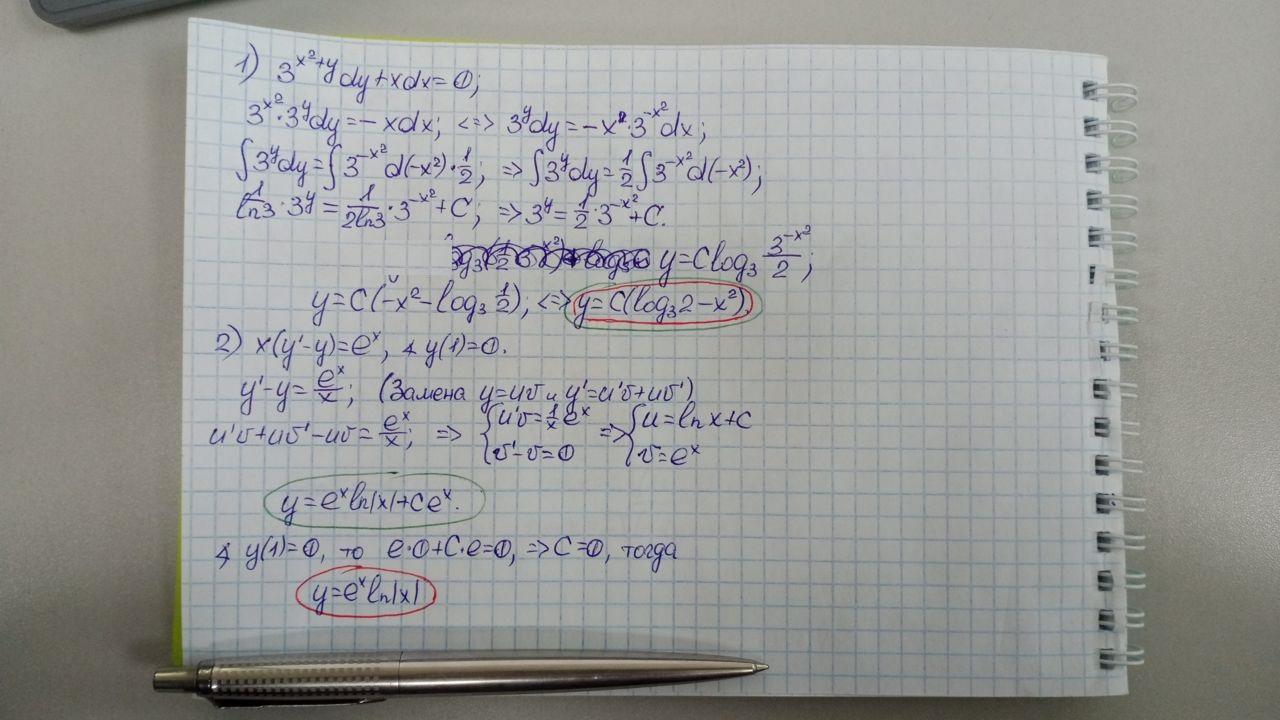 1) 3^{x²+y}dy+xdx=0;
3^{x²}·3^y dy=-xdx; <=> 3^y dy=-x·3^{-x²}dx;
∫3^y dy=∫3^{-x²}d(-x²)·1/2; => ∫3^y dy=1/2∫3^{-x²}d(-x²);
1/ln3·3^y=1/2ln3·3^{-x²}+C; => 3^y=1/2·3^{-x²}+C.
y=Clog₃ 3^{-x²}/2;
y=C(-x²-log₃ 1/2), <=> y=C(log₃2-x²).
2) x(y'-y)=e^x, ∢ y(1)=0.
y'-y=e^x/x; (Замена y=uv и y'=u'v+uv')
u'v+uv'-uv=e^x/x; => {u'v=1/x e^x => {u=ln x+c
{v'-v=0 {v=e^x
y=e^x ln|x|+ce^x.
∢ y(1)=0, то e·0+C·e=0, => C=0, тогда
y=e^x ln|x|